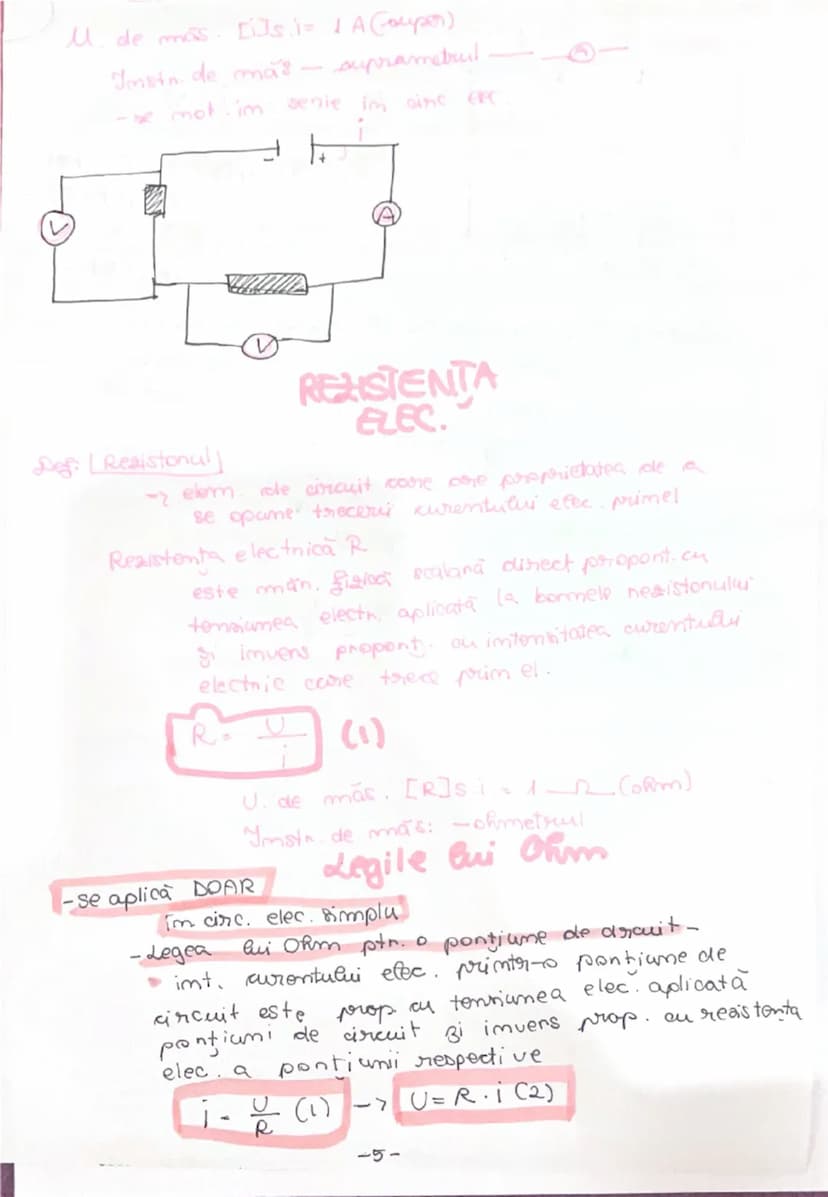 U. de măs. [i]s.i = 1 A (amper)
Instr. de măs – ampermetrul — A —
- se mot. în serie în circ elec.
i
- +
V
A
V
REZISTENȚA
ELEC.
Def: [Rezistorul]
-> elem. de circuit care are proprietatea de a
se opune trecerii curentului elec. primel
Rezistența electrică R
este măr. fizică scalară direct proporț. cu
tensiunea electr. aplicată la bornele rezistorului
și invers proporț. cu intensitatea curentului
electric care trece prim el.
R = U/i (1)
U. de măs. [R]s i = 1 Ω (ohm)
Instr. de măs: - ohmetrul
Legile lui Ohm
- se aplică DOAR
în circ. elec. simplu
- Legea lui Ohm ptr. o porțiune de circuit -
• int. curentului elec. printr-o porțiune de
circuit este prop cu tensiunea elec. aplicată
porțiuni de circuit și invers prop. cu rezistența
elec. a porțiunii respective
i = U/R (1) -> U = R · i (2)
-5-